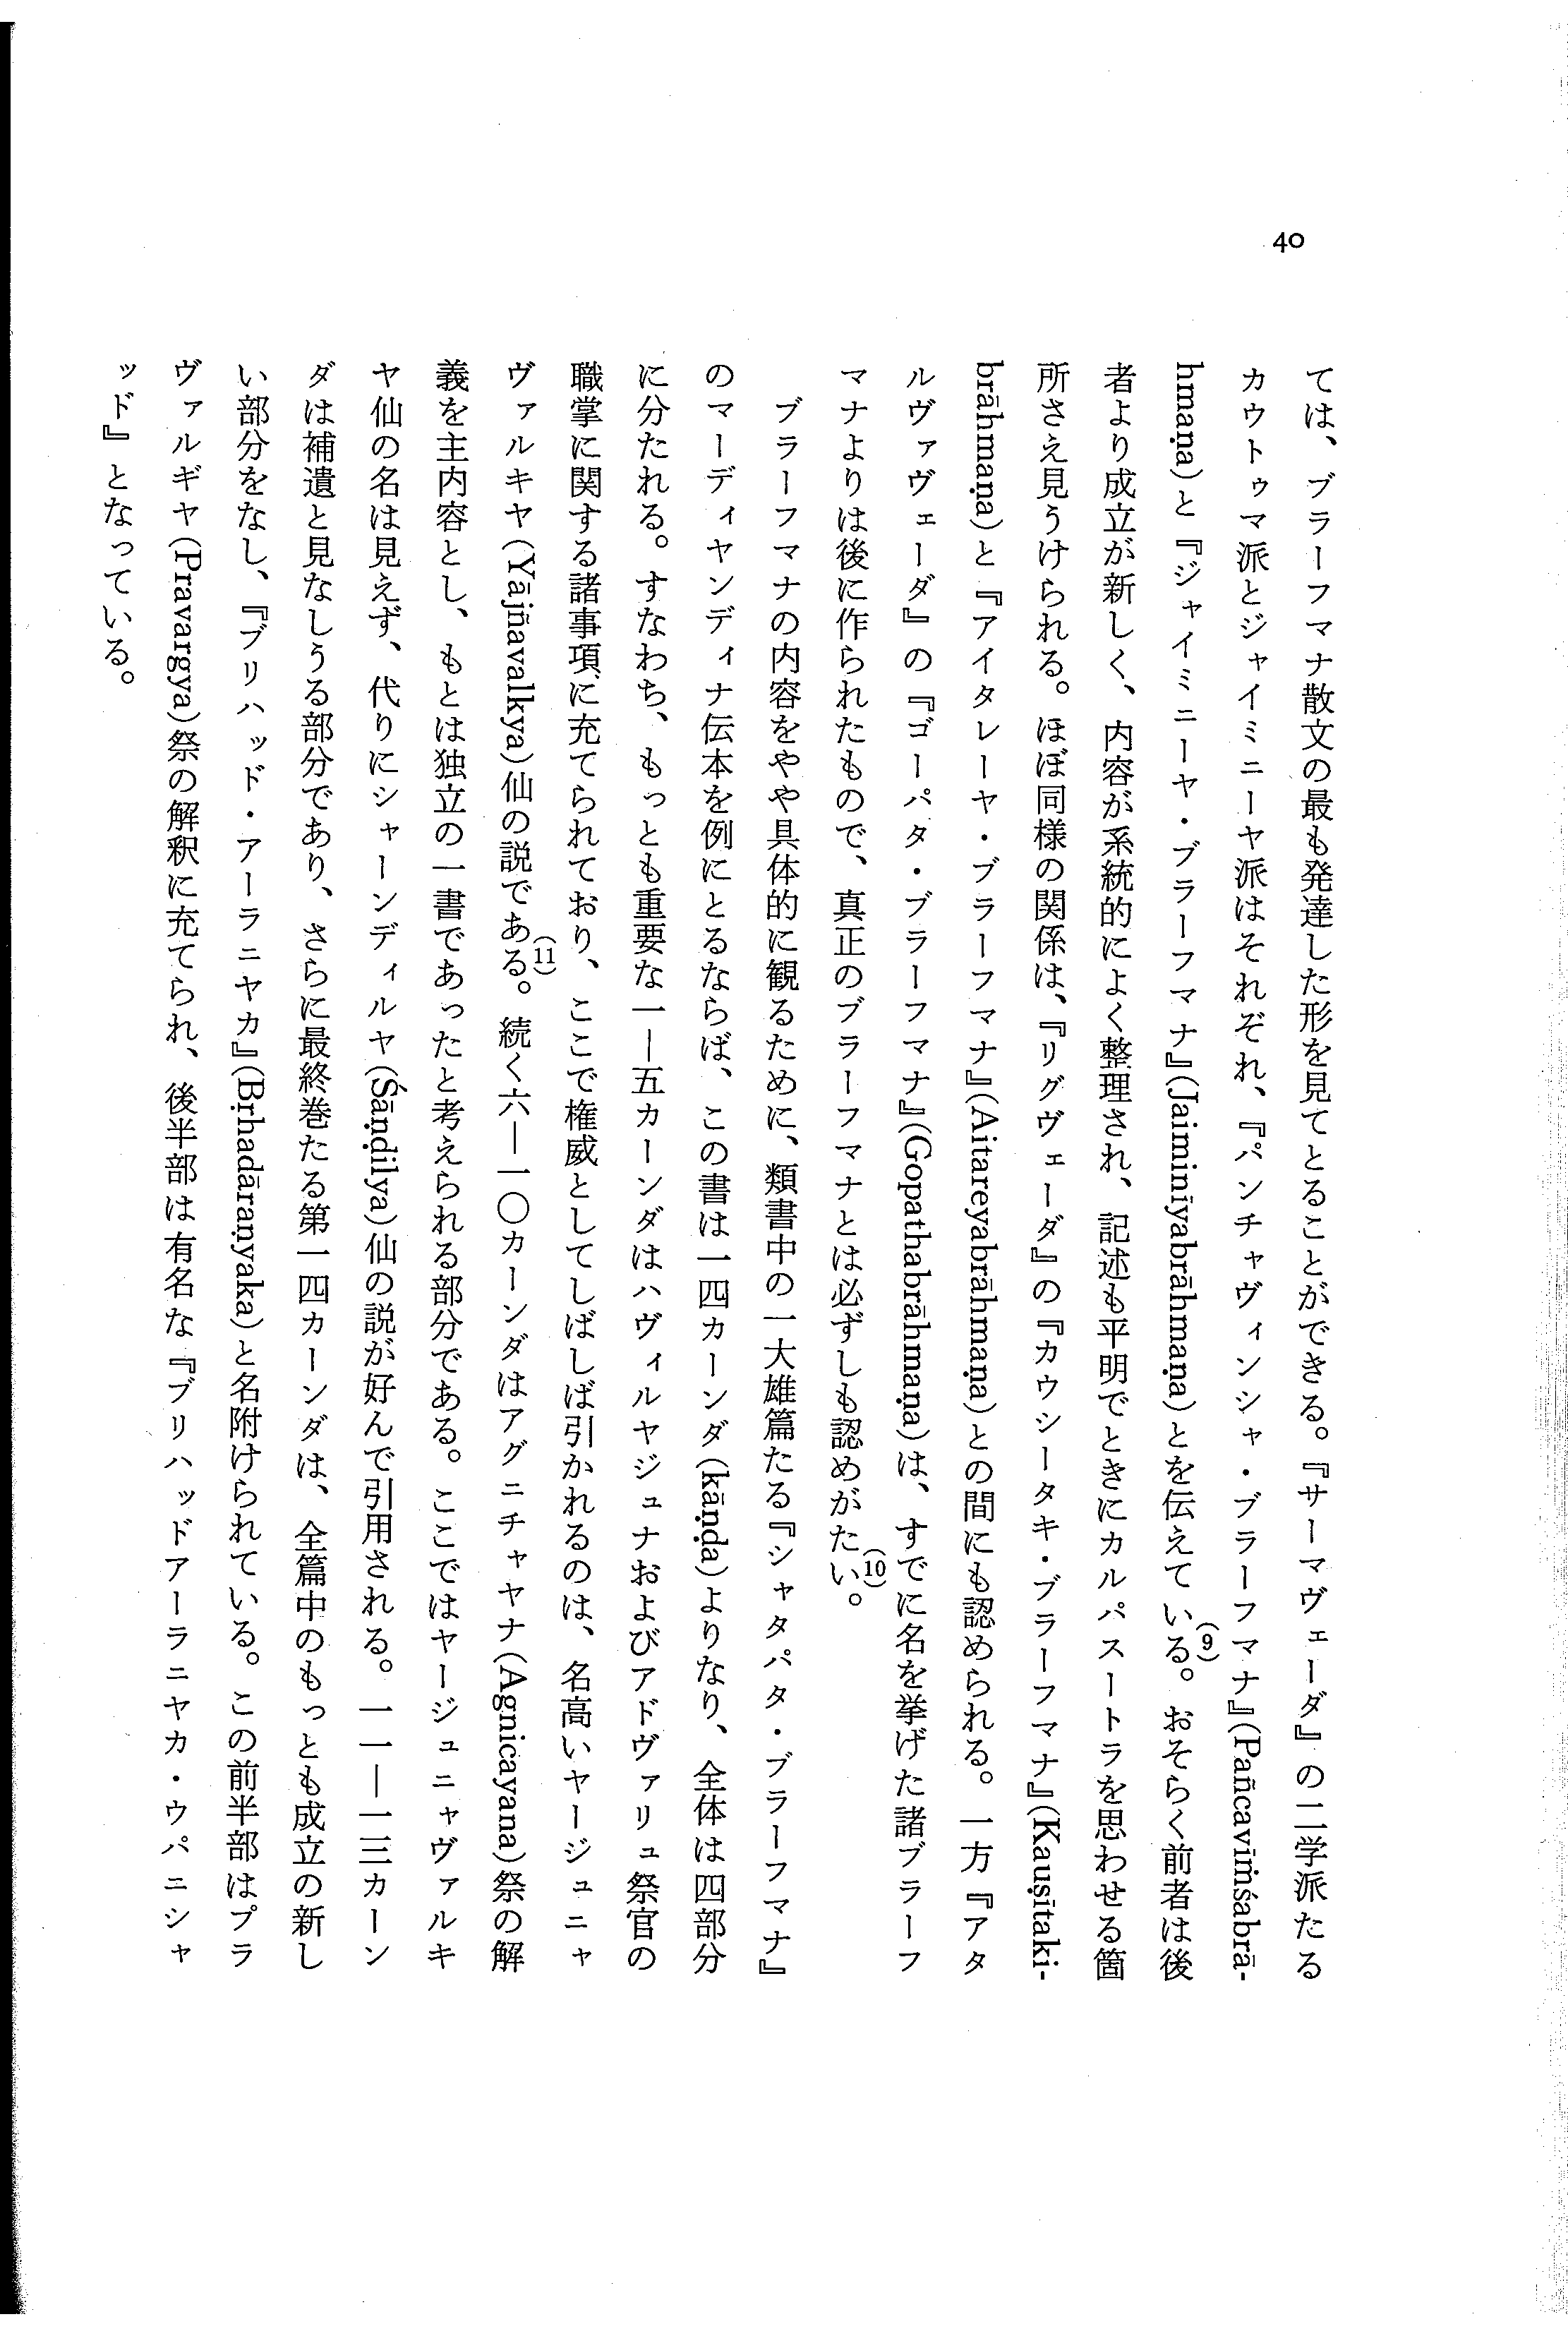 40
ては、ブラーフマナ散文の最も発達した形を見てとることができる。『サーマヴェーダ』の二学派たる
カウトゥマ派とジャイミニーヤ派はそれぞれ、『パンチャヴィンシャ・ブラーフマナ』(Pañcaviṁśabrā-
hmaṇa)と『ジャイミニーヤ・ブラーフマナ』(Jaiminīyabrāhmaṇa)とを伝えている(9)。おそらく前者は後
者より成立が新しく、内容が系統的によく整理され、記述も平明でときにカルパスートラを思わせる箇
所さえ見うけられる。ほぼ同様の関係は、『リグヴェーダ』の『カウシータキ・ブラーフマナ』(Kauṣītaki-
brāhmaṇa)と『アイタレーヤ・ブラーフマナ』(Aitareyabrāhmaṇa)との間にも認められる。一方『アタ
ルヴァヴェーダ』の『ゴーパタ・ブラーフマナ』(Gopathabrāhmaṇa)は、すでに名を挙げた諸ブラーフ
マナよりは後に作られたもので、真正のブラーフマナとは必ずしも認めがたい(10)。
ブラーフマナの内容をやや具体的に観るために、類書中の一大雄篇たる『シャタパタ・ブラーフマナ』
のマーディヤンディナ伝本を例にとるならば、この書は一四カーンダ(kāṇḍa)よりなり、全体は四部分
に分たれる。すなわち、もっとも重要な一―五カーンダはハヴィルヤジュナおよびアドヴァリュ祭官の
職掌に関する諸事項に充てられており、ここで権威としてしばしば引かれるのは、名高いヤージュニャ
ヴァルキヤ(Yājñavalkya)仙の説である(11)。続く六―一〇カーンダはアグニチャヤナ(Agnicayana)祭の解
義を主内容とし、もとは独立の一書であったと考えられる部分である。ここではヤージュニャヴァルキ
ヤ仙の名は見えず、代りにシャーンディルヤ(Śāṇḍilya)仙の説が好んで引用される。一一―一三カーン
ダは補遺と見なしうる部分であり、さらに最終巻たる第一四カーンダは、全篇中のもっとも成立の新し
い部分をなし、『ブリハッド・アーラニヤカ』(Bṛhadāraṇyaka)と名附けられている。この前半部はプラ
ヴァルギヤ(Pravargya)祭の解釈に充てられ、後半部は有名な『ブリハッドアーラニヤカ・ウパニシャ
ッド』となっている。